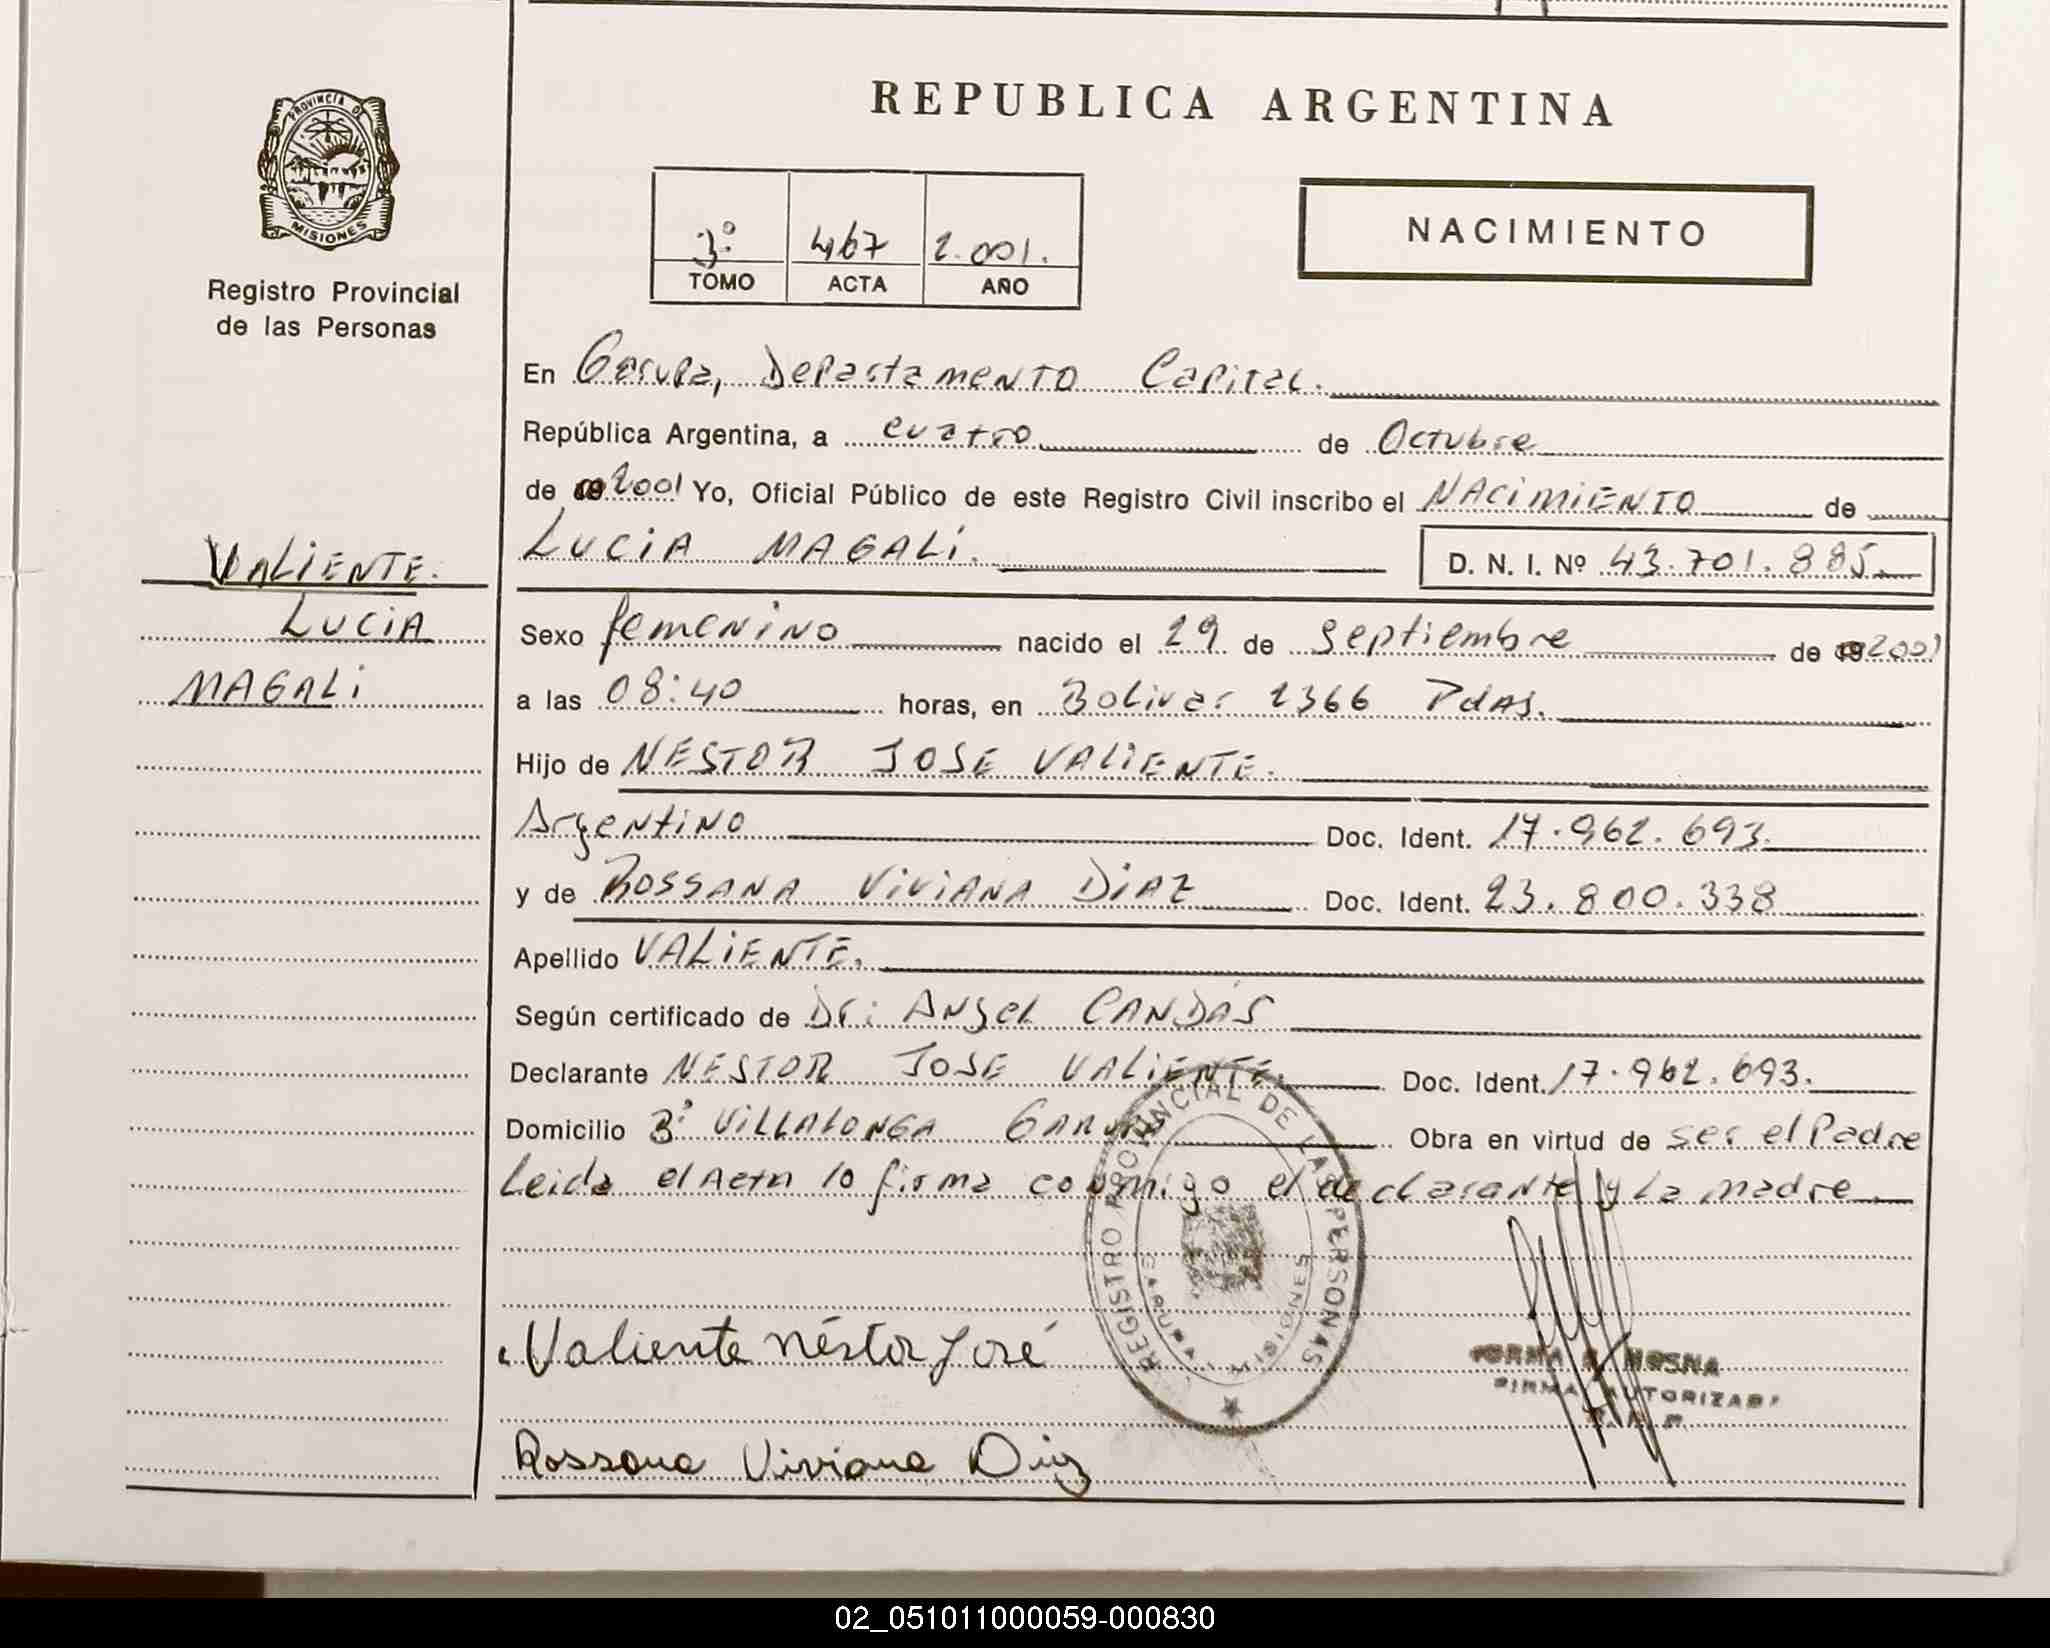 REPUBLICA ARGENTINA
PROVINCIA DE
MISIONES
Registro Provincial
de las Personas
3º 467 2.001.
TOMO ACTA AÑO
NACIMIENTO
En Garupa, Departamento Capital.
República Argentina, a cuatro de Octubre
de 2001 Yo, Oficial Público de este Registro Civil inscribo el NACIMIENTO de
LUCIA MAGALI. D. N. I. Nº 43.701.885.
VALIENTE.
LUCIA
MAGALI
Sexo femenino nacido el 29 de septiembre de 2001
a las 08:40 horas, en Bolivar 1366 Pdas.
Hijo de NESTOR JOSE VALIENTE.
Argentino Doc. Ident. 17.962.693.
y de ROSSANA VIVIANA DIAZ Doc. Ident. 23.800.338
Apellido VALIENTE.
Según certificado de Dr: Angel CANDÁS
Declarante NESTOR JOSE VALIENTE. Doc. Ident. 17.962.693.
Domicilio Bº VILLALONGA GARUPA Obra en virtud de ser el Padre
Leida el Acta lo firma conmigo el declarante y La madre.
REGISTRO PROVINCIAL DE LAS PERSONAS
GARUPA MISIONES
Valiente Néstor José
MOSNA
FIRMA AUTORIZADA
Rossana Viviana Diaz
02_051011000059-000830